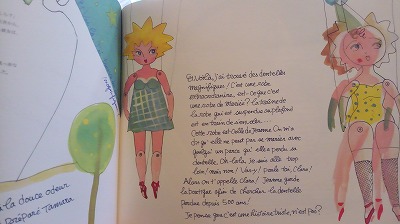 Et Voilà, j'ai trouvé des dentelles
magnifiques! C'est une robe
extraordinaire, est-ce que c'est
une robe de mariée? la traîne de
la robe qui est suspendue au plafond
est en train de s'envoler...
Cette robe est celle de Jeanne. On m'a
dit qu'elle ne peut pas se marier avec
parce qu'elle a perdu sa
dentelle. Oh-là-là. Je suis allé trop
loin, mais non! Vas-y! parle toi, Clara!
Alors on t'appelle Clara! Jeanne garde
la boutique afin de chercher la dentelle
perdue depuis 500 ans!
Je pense que c'est une histoire triste, n'est pas?
la douce odeur
Préparé Tamara